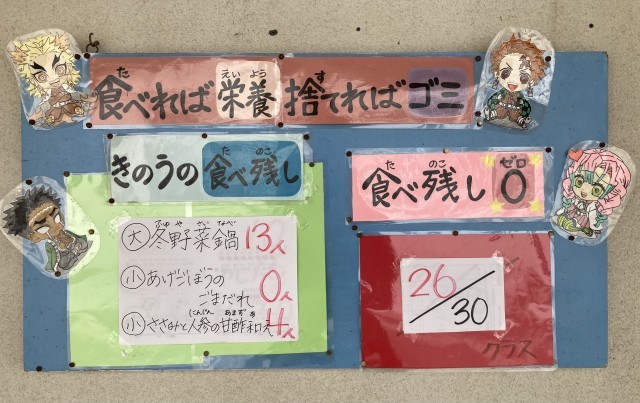 食べれば栄養捨てればゴミ
きのうの食べ残し
大 冬野菜鍋 13人
小 あげごぼうの
ごまだれ 0人
小 ささみと人参の甘酢和え 4人
食べ残し 0
26/30
クラス